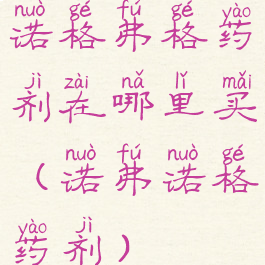 nuò gé fú gé yào
诺格弗格药
jì zài nǎ lǐ mǎi
剂在哪里买
nuò fú nuò gé
（诺弗诺格
yào jì
药剂）